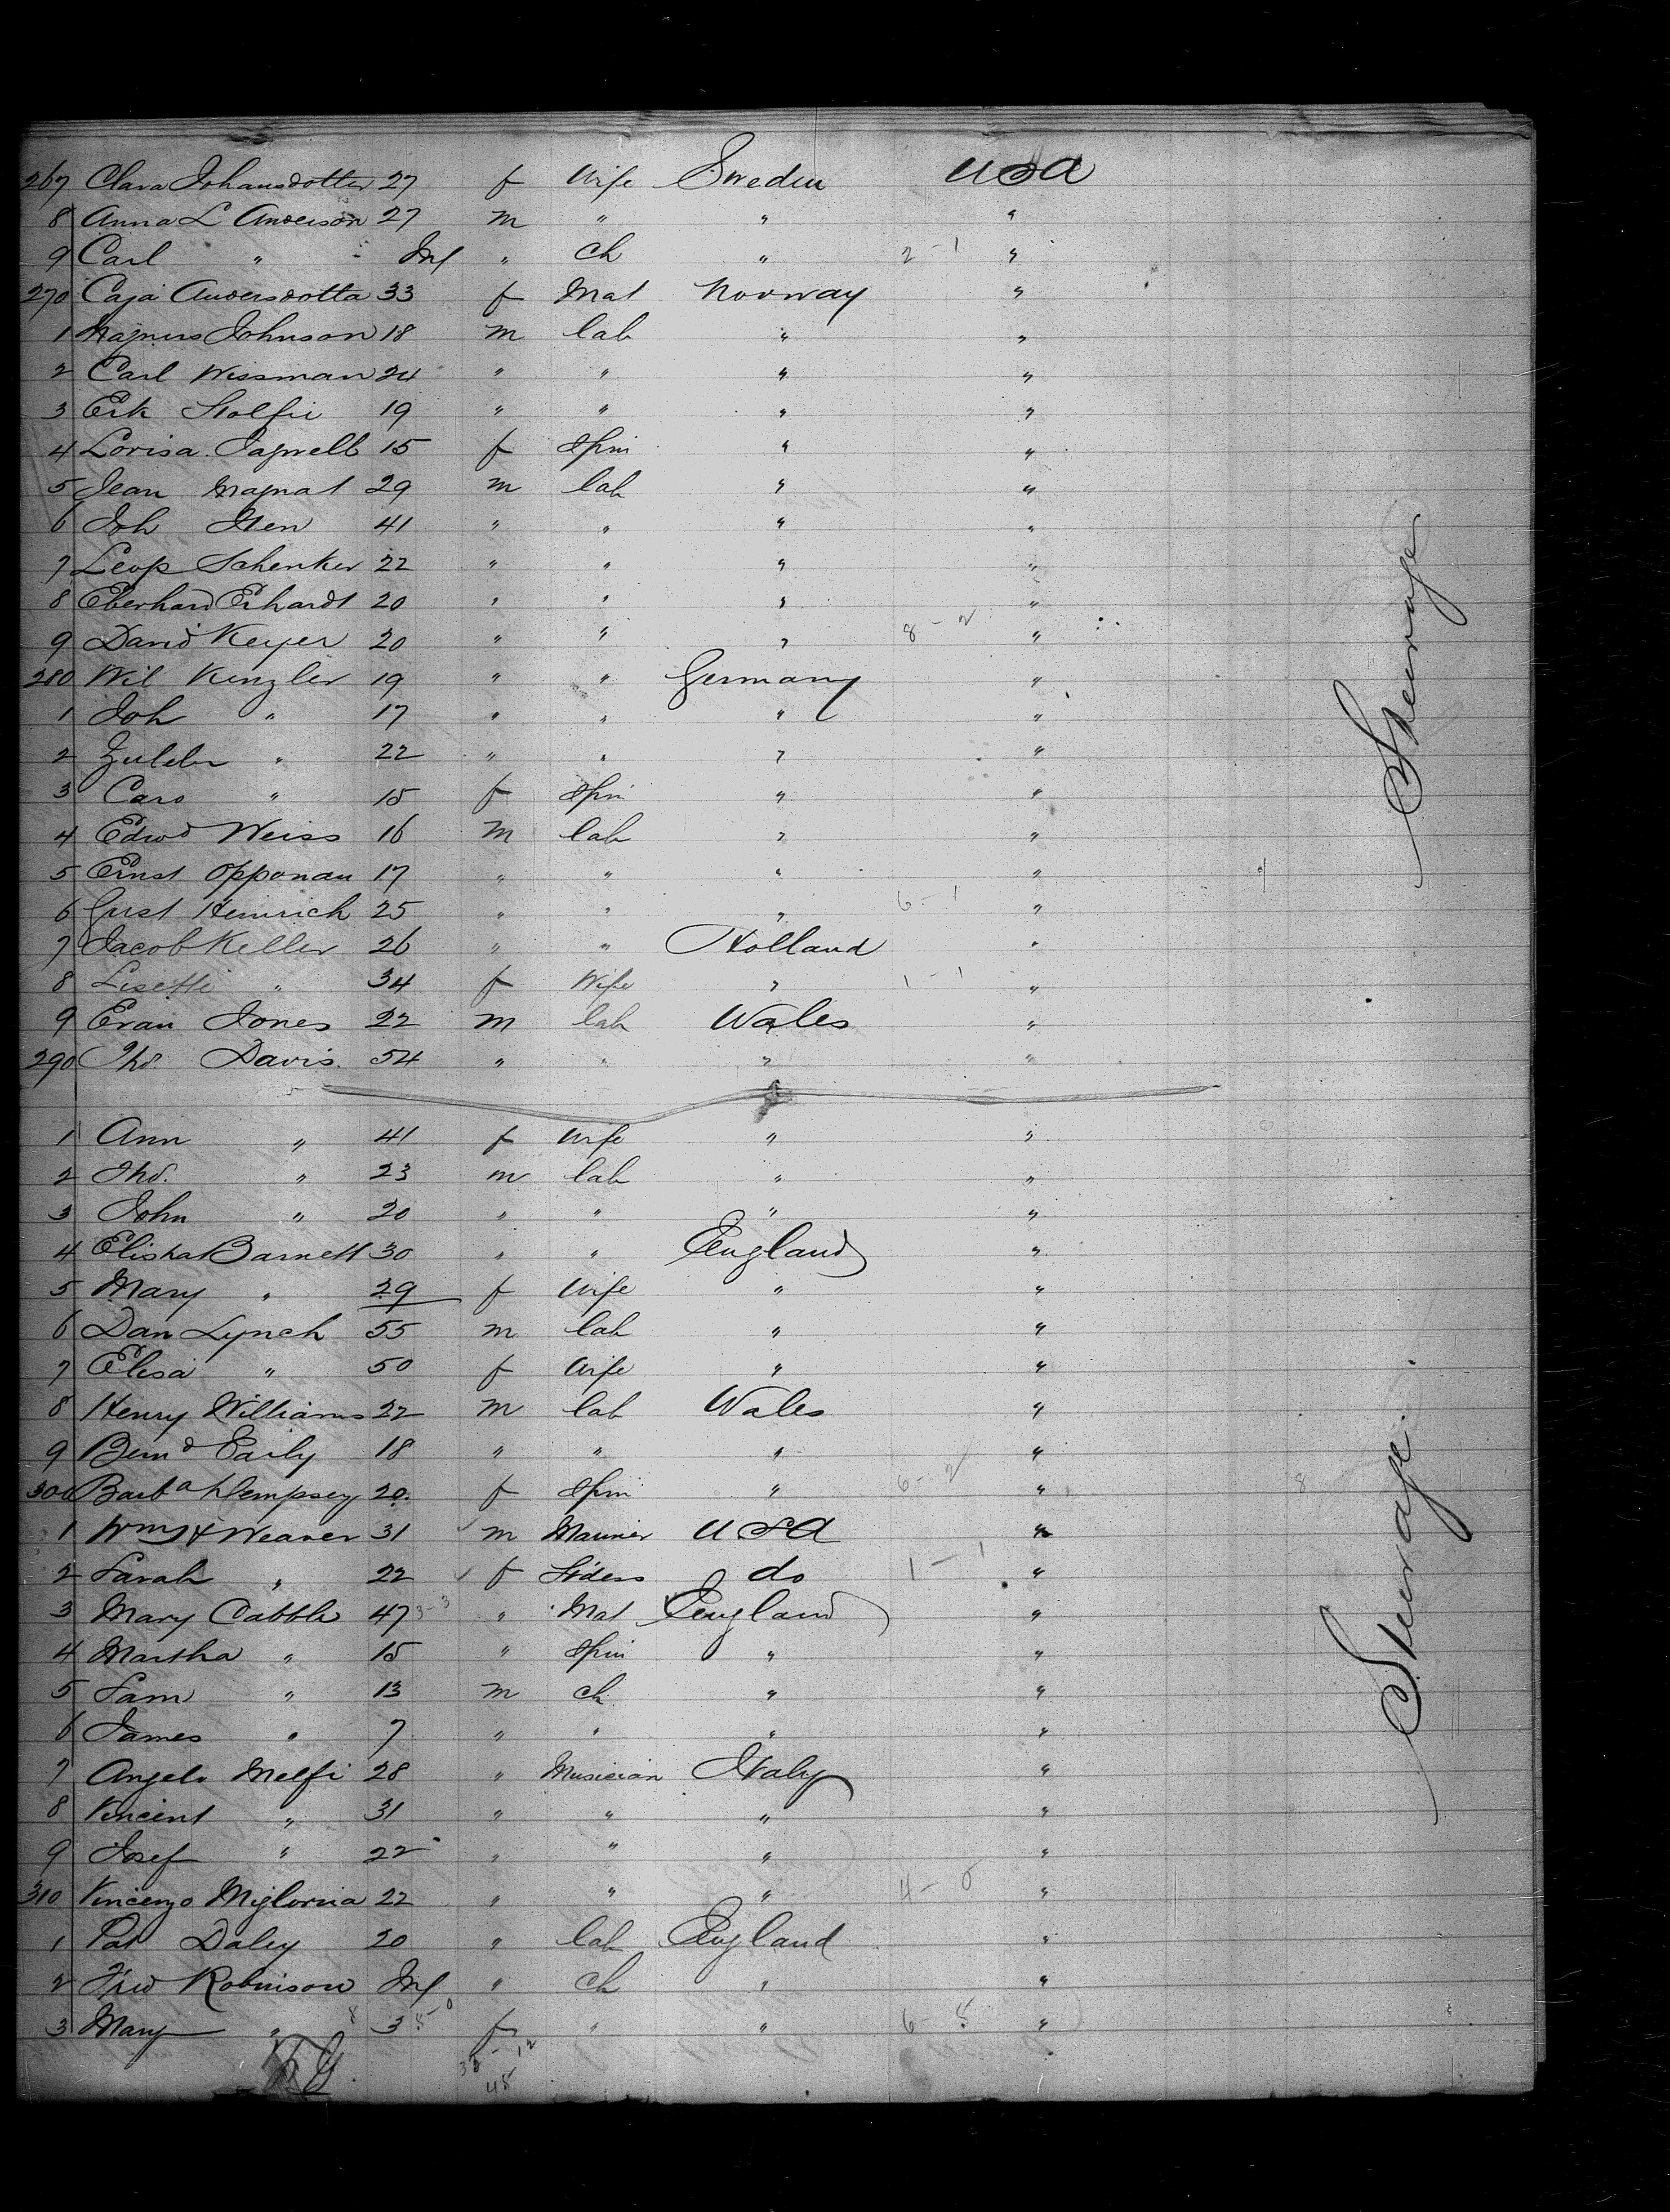 267 Clara Johansdotter 27 f Wife Sweden USA
8 Anna L Anderson 27 m " " "
9 Carl " Inf " ch " 2-1 "
270 Caja Andersdotta 33 f Mat Norway "
1 Magnus Johnson 18 m lab " "
2 Carl Wissman 24 " " " "
3 Erk 19 " " " "
4 Lovisa 15 f Spin " "
5 Jean Magnat 29 m lab " "
6 Joh Iten 41 " " " "
7 Leop Schenker 22 " " " "
8 Eberhard Erhardt 20 " " " "
9 David Keyer 20 " " " 8-2 "
280 Wil Kinzler 19 " " Germany "
1 Joh " 17 " " " "
2 " 22 " " " "
3 Caro " 15 f Spin " "
4 Edwd Weiss 16 m lab " "
5 Ernst Opponau 17 " " " "
6 Gust Heinrich 25 " " " 6-1 "
7 Jacob Keller 26 " " Holland "
8 Lisette " 34 f Wife " 1-1 "
9 Evan Jones 22 m lab Wales "
290 Tho. Davis 54 " " " "
Steerage
1 Ann " 41 f Wife " "
2 Tho. " 23 m lab " "
3 John " 20 " " " "
4 Elisha Barnett 30 " " England "
5 Mary " 29 f Wife " "
6 Dan Lynch 55 m lab " "
7 Elisa " 50 f Wife " "
8 Henry Williams 22 m lab Wales "
9 Bernd Early 18 " " " "
300 Barba Dempsey 20 f Spin " 6-2 " 8
1 Wm H Weaver 31 m Mariner USA "
2 Sarah " 22 f St'dess do 1-1 "
3 Mary Cabble 47 3-3 " Mat England "
4 Martha " 15 " Spin " "
5 Sam " 13 m ch " "
6 James " 7 " " " "
7 Angelo Melfi 28 " Musician Italy "
8 Vincent " 31 " " " "
9 Josef " 22 " " " "
310 Vincenzo Migloria 22 " " " 4-0 "
1 Pat Daley 20 " lab England "
2 Fred Robinson Inf " ch " "
3 Mary " 3 f " " "
Steerage